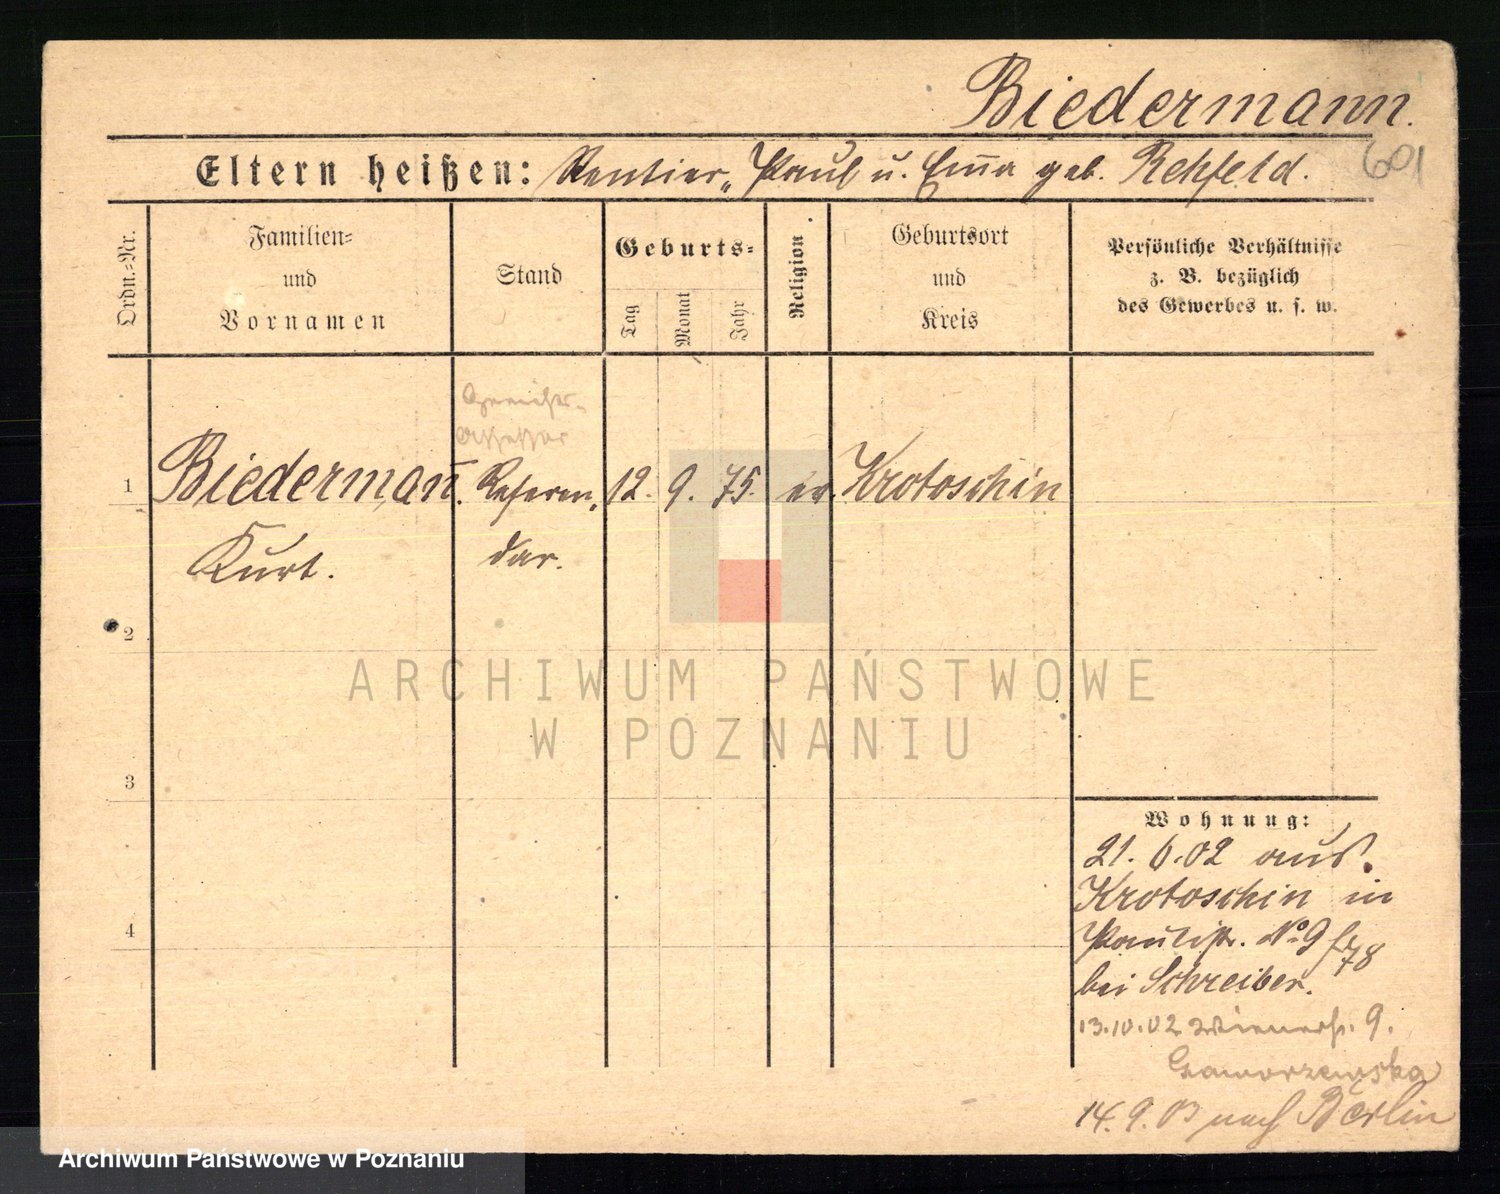 Biedermann.
Eltern heißen: Rentier, Paul u. Em̄a geb. Rehfeld. 601
Ordn.=Nr.
Familien=
und
Vornamen
Stand
Geburts=
Tag
Monat
Jahr
Religion
Geburtsort
und
Kreis
Persönliche Verhältnisse
z. B. bezüglich
des Gewerbes u. s. w.
Gerichts-
Assessor
1 Biederman̄. Referen„ 12. 9. 75. ev. Krotoschin
Kurt. dar.
2
3
4
ARCHIWUM PAŃSTWOWE
W POZNANIU
Wohnung:
21. 6. 02 aus.
Krotoschin in
Paulistr. No 9 f. 78
bei Schreiber.
13.10.02 Wienerstr. 9.
14. 9. 03 nach Berlin
Archiwum Państwowe w Poznaniu